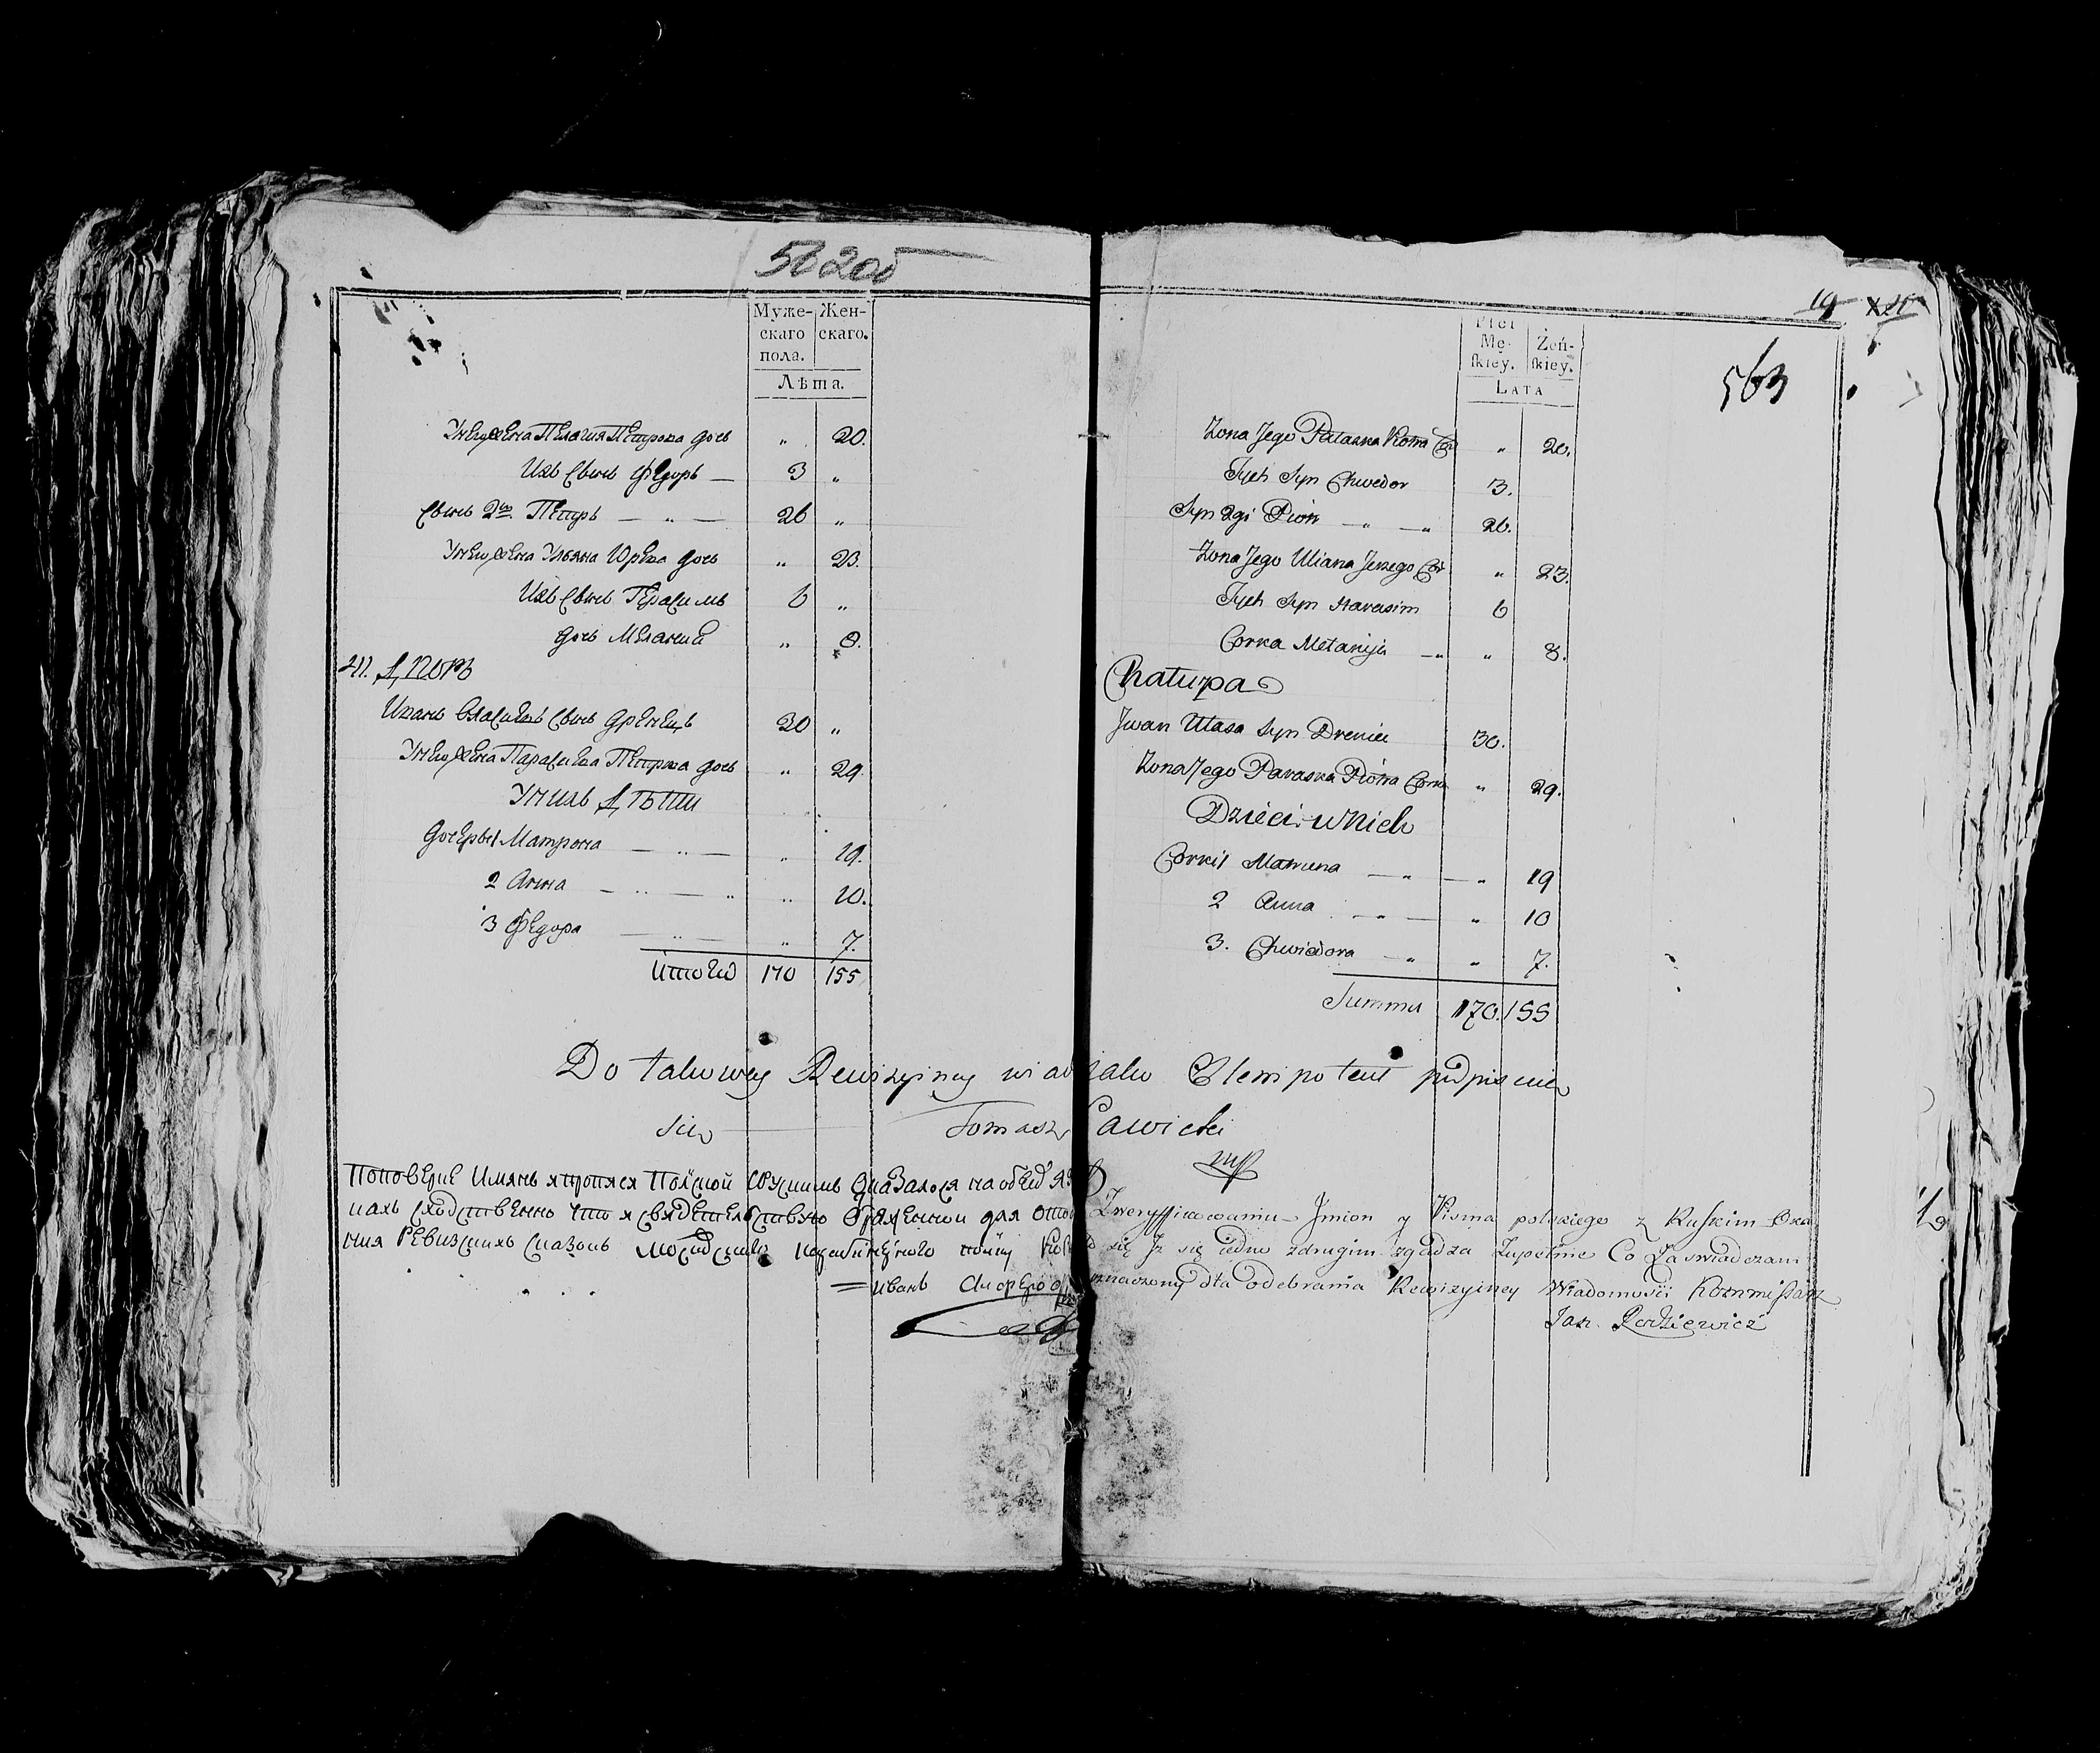 562об
Муже-
скаго
пола.
Жен-
скаго.
Лѣта.
У него жена Пелагия Петрова дочь " 20.
Ихъ сынъ Федоръ 3 "
Сынъ 2й Петръ 26 "
У него жена Ульяна Юрева дочь " 23.
Ихъ сынъ Герасимъ 6 "
дочь Мелания " 8.
41. Дворъ
Иванъ Власиевъ сынъ Дренецъ 30 "
У него жена Парасква Петрова дочь " 29.
У нихъ Дѣти
Дочеры 1 Матрона " 19.
2 Анна " 10.
3 Федора " 7.
Итого 170 155
19
563
Płci
Mę-
ſkiey.
Żeń-
ſkiey.
LATA
Żona Jego Pałaska Piotra Cor " 20.
Tych Syn Chwedor 3.
Syn 2gi Piotr 26.
Żona Jego Uliana Jerzego Cor " 23.
Tych Syn Harasim 6
Corka Mełanija " 8.
Chałupa
Jwan Ułasa Syn Dreniec 30.
Żona Jego Paraska Piotra Corka " 29.
Dzieci u Nich
Corki 1 Matruna " 19
2 Anna " 10
3. Chwiedora " 7.
Summa 170. 155
Do takowey Rewizyiney Plenipotent podpisuie
się Tomasz Sawicki
mp
По поверке Имянъ
что я свидетельствую для
ния Ревизскихъ Сказокъ
Иванъ
Zweryffikowaniu Jmion y Pisma polskiego z Ruſkim Oka
się Jż się iedno zdrugim zgadza Zupełnie Co Zaswiadczam
znaczony dla odebrania Rewizyiney Wiadomości Kommiſſarz
Jan